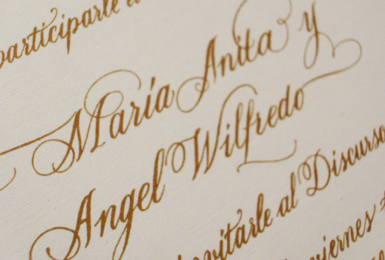 participarle
María Anita y
Angel Wilfredo
invitarle al Discurso
viernes